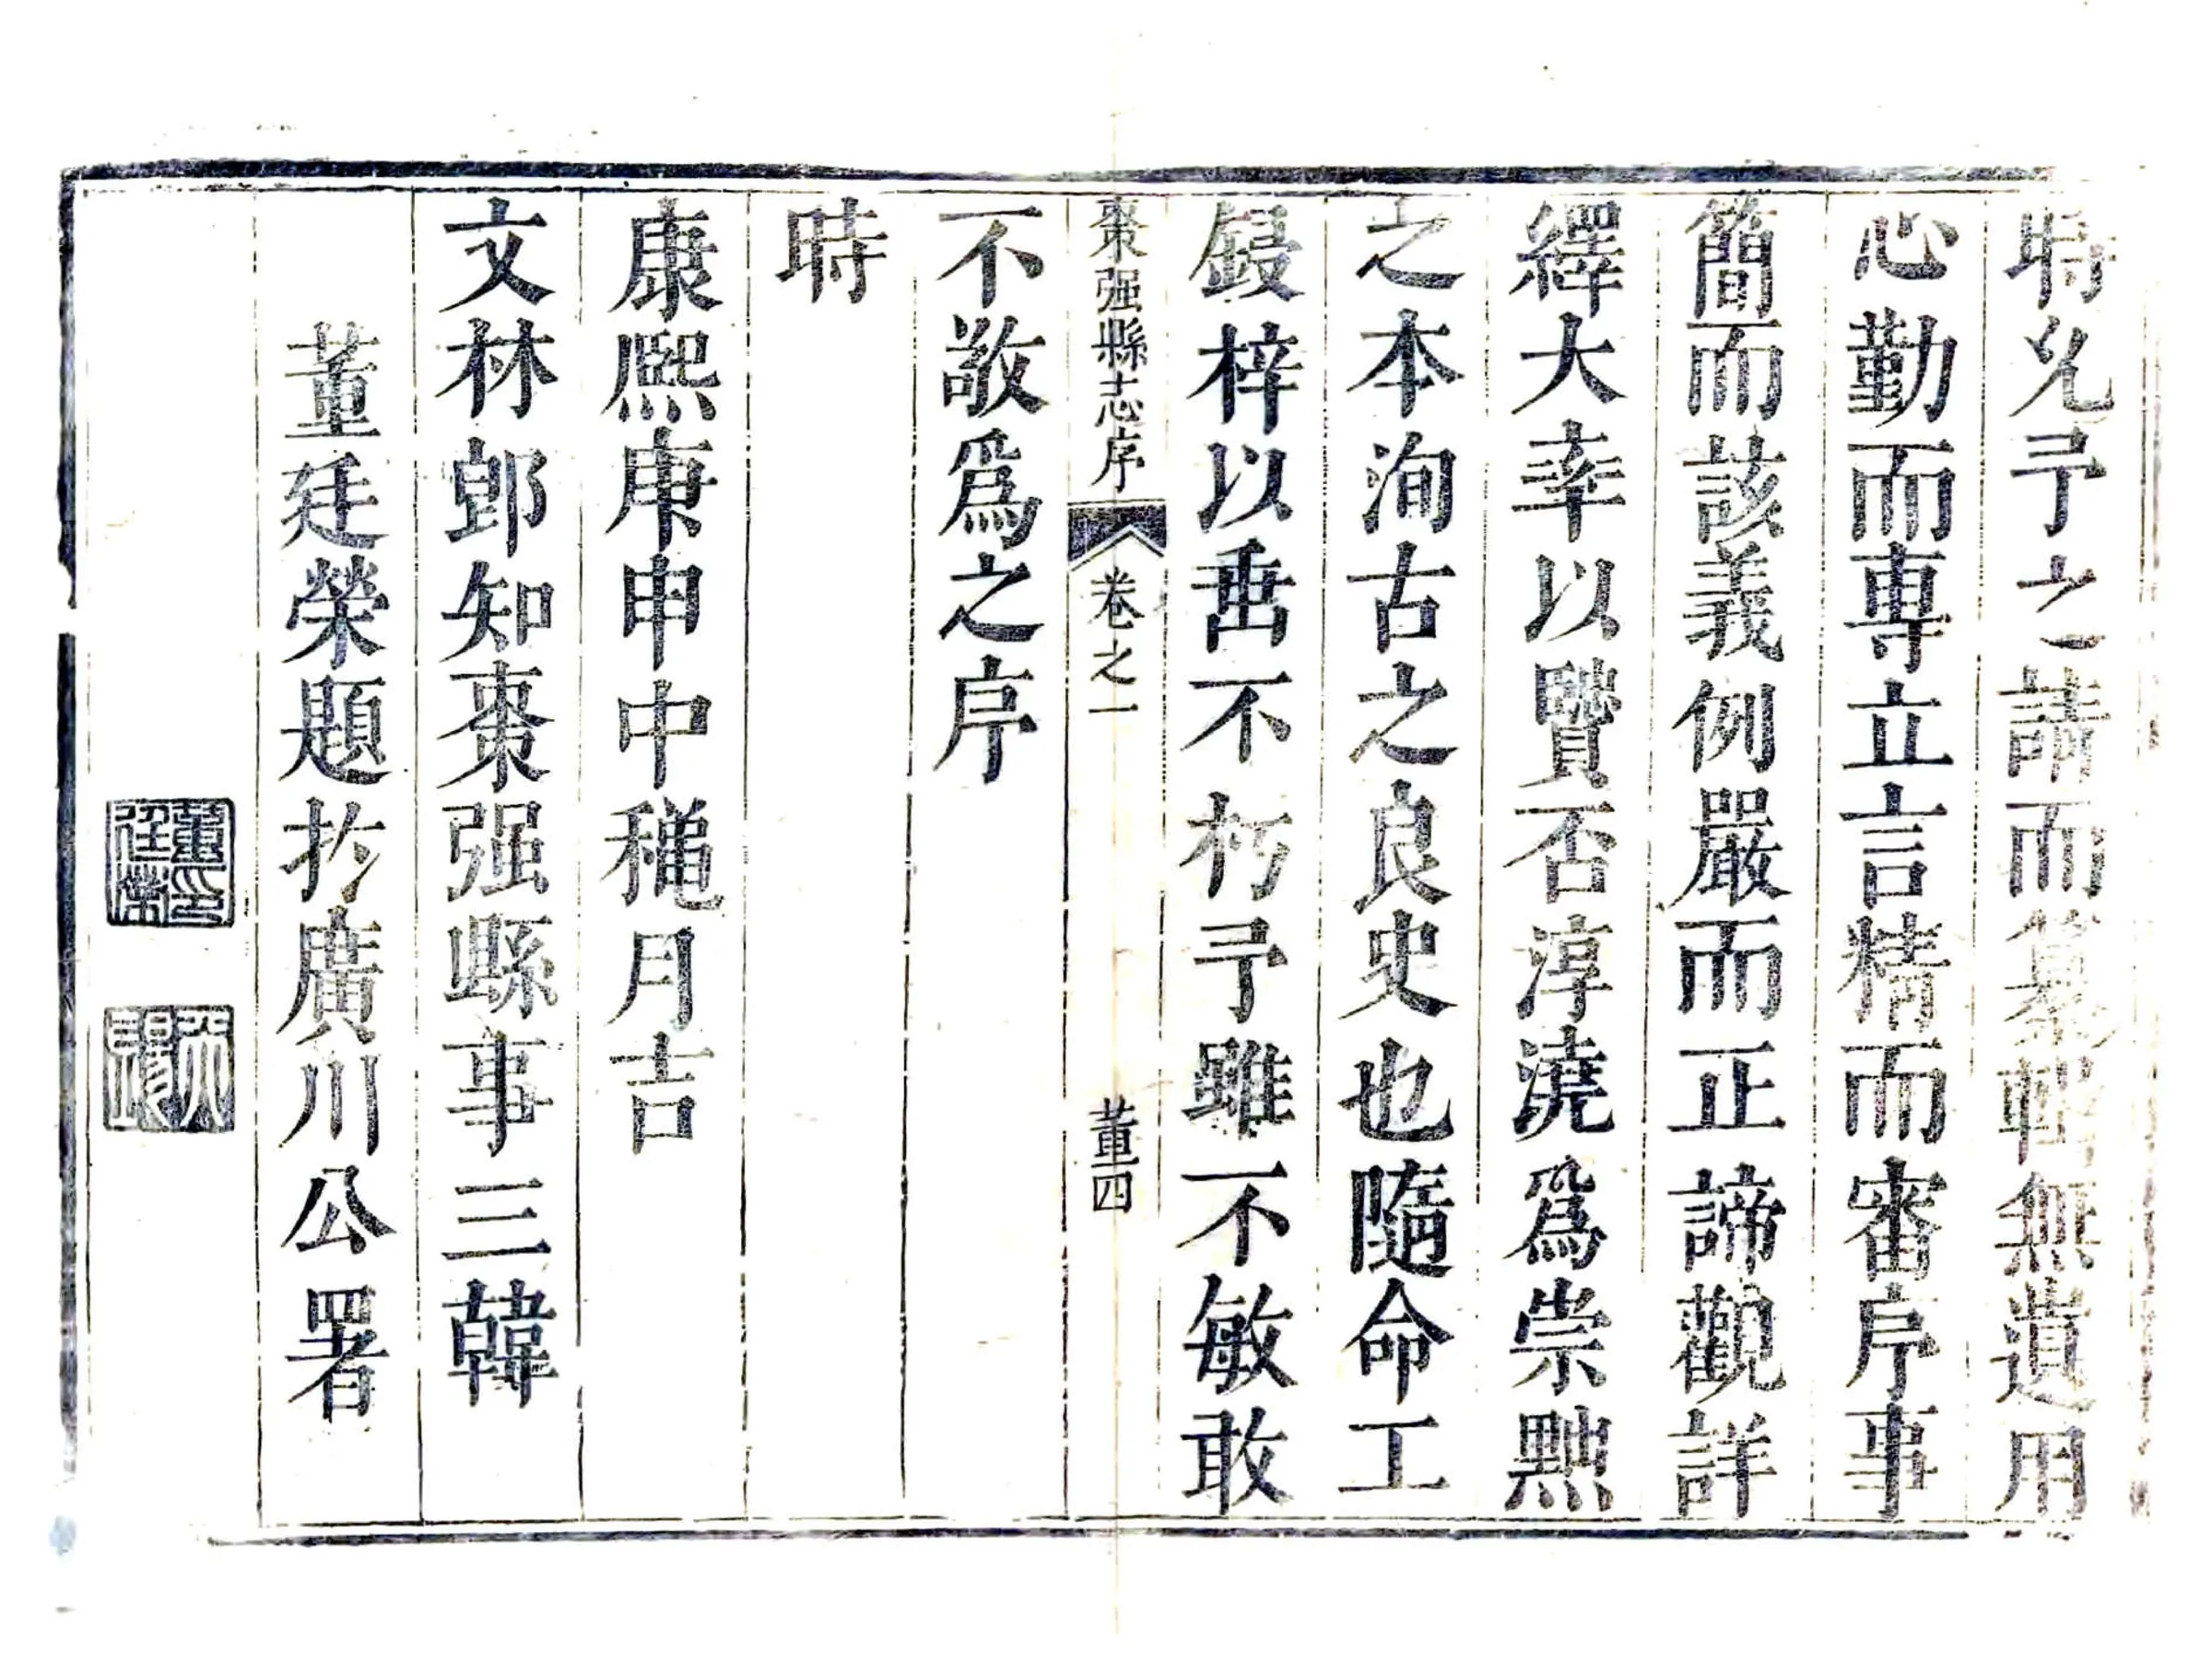 時允予之請而纂輯無遺用
心勤而專立言精而審序事
簡而該義例嚴而正諦觀詳
繹大率以賢否淳澆爲崇黜
之本洵古之良史也隨命工
鋟梓以垂不朽予雖不敏敢
棗强縣志序 卷之一 董四
不敬爲之序
時
康熙庚申中龝月吉
文林郎知棗强縣事三韓
董廷榮題扵廣川公署
董印廷榮